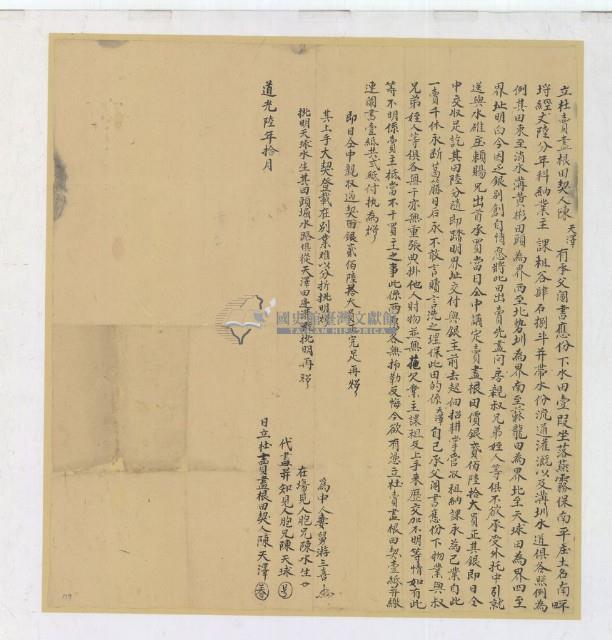 立杜賣盡根田契人陳天澤有承父鬮書應份下水田壹段坐落燕霧保南平庄土名南畔
埒經丈陸分年科納業主課租谷肆石捌斗并帶水份流通灌溉以及溝圳水道俱各照例為
例其田東至消水溝黃彬田頭為界西至北勢圳為界南至霖龍田為界北至天球田為界四至
界址明白今因乏銀別創自情愿將此田出賣先盡問房親叔兄弟姪人等俱不欲承受外托中引就
送與水碓庄賴賜兄出首承買當日仝中議定賣盡根田價銀貳佰陸拾大員正其銀即日仝
中交收足訖其田陸分隨即踏明界址交付與銀主前去起佃招耕掌管收租納課永為己業自此
一賣千休永斷葛藤日后永不敢言贖言洗之理保此田的係天澤自己承父鬮書應份下物業與叔
兄弟姪人等俱各無干亦無重張典掛他人財物並無拖欠業主課租及上手來歷交加不明等情如有此
等不明係賣主抵當不干買主之事此係兩愿各無抑勒反悔今欲有憑立杜賣盡根田契壹紙并繳
連鬮書壹紙共弍紙付執為炤
即日仝中親收過契面銀貳佰陸拾大員正完足再炤
其上手大契登載在別業難以分折批明炤
批明天球水生其田頭塭水路俱從天澤田邊流通批明再炤
道光陸年拾月
為中人妻舅蔣三喜
在塲見人胞兄陳水生
代書并知見人胞兄陳天球
日立杜賣盡根田契人陳天澤
國史館臺灣文獻館
TAIWAN HISTORICA